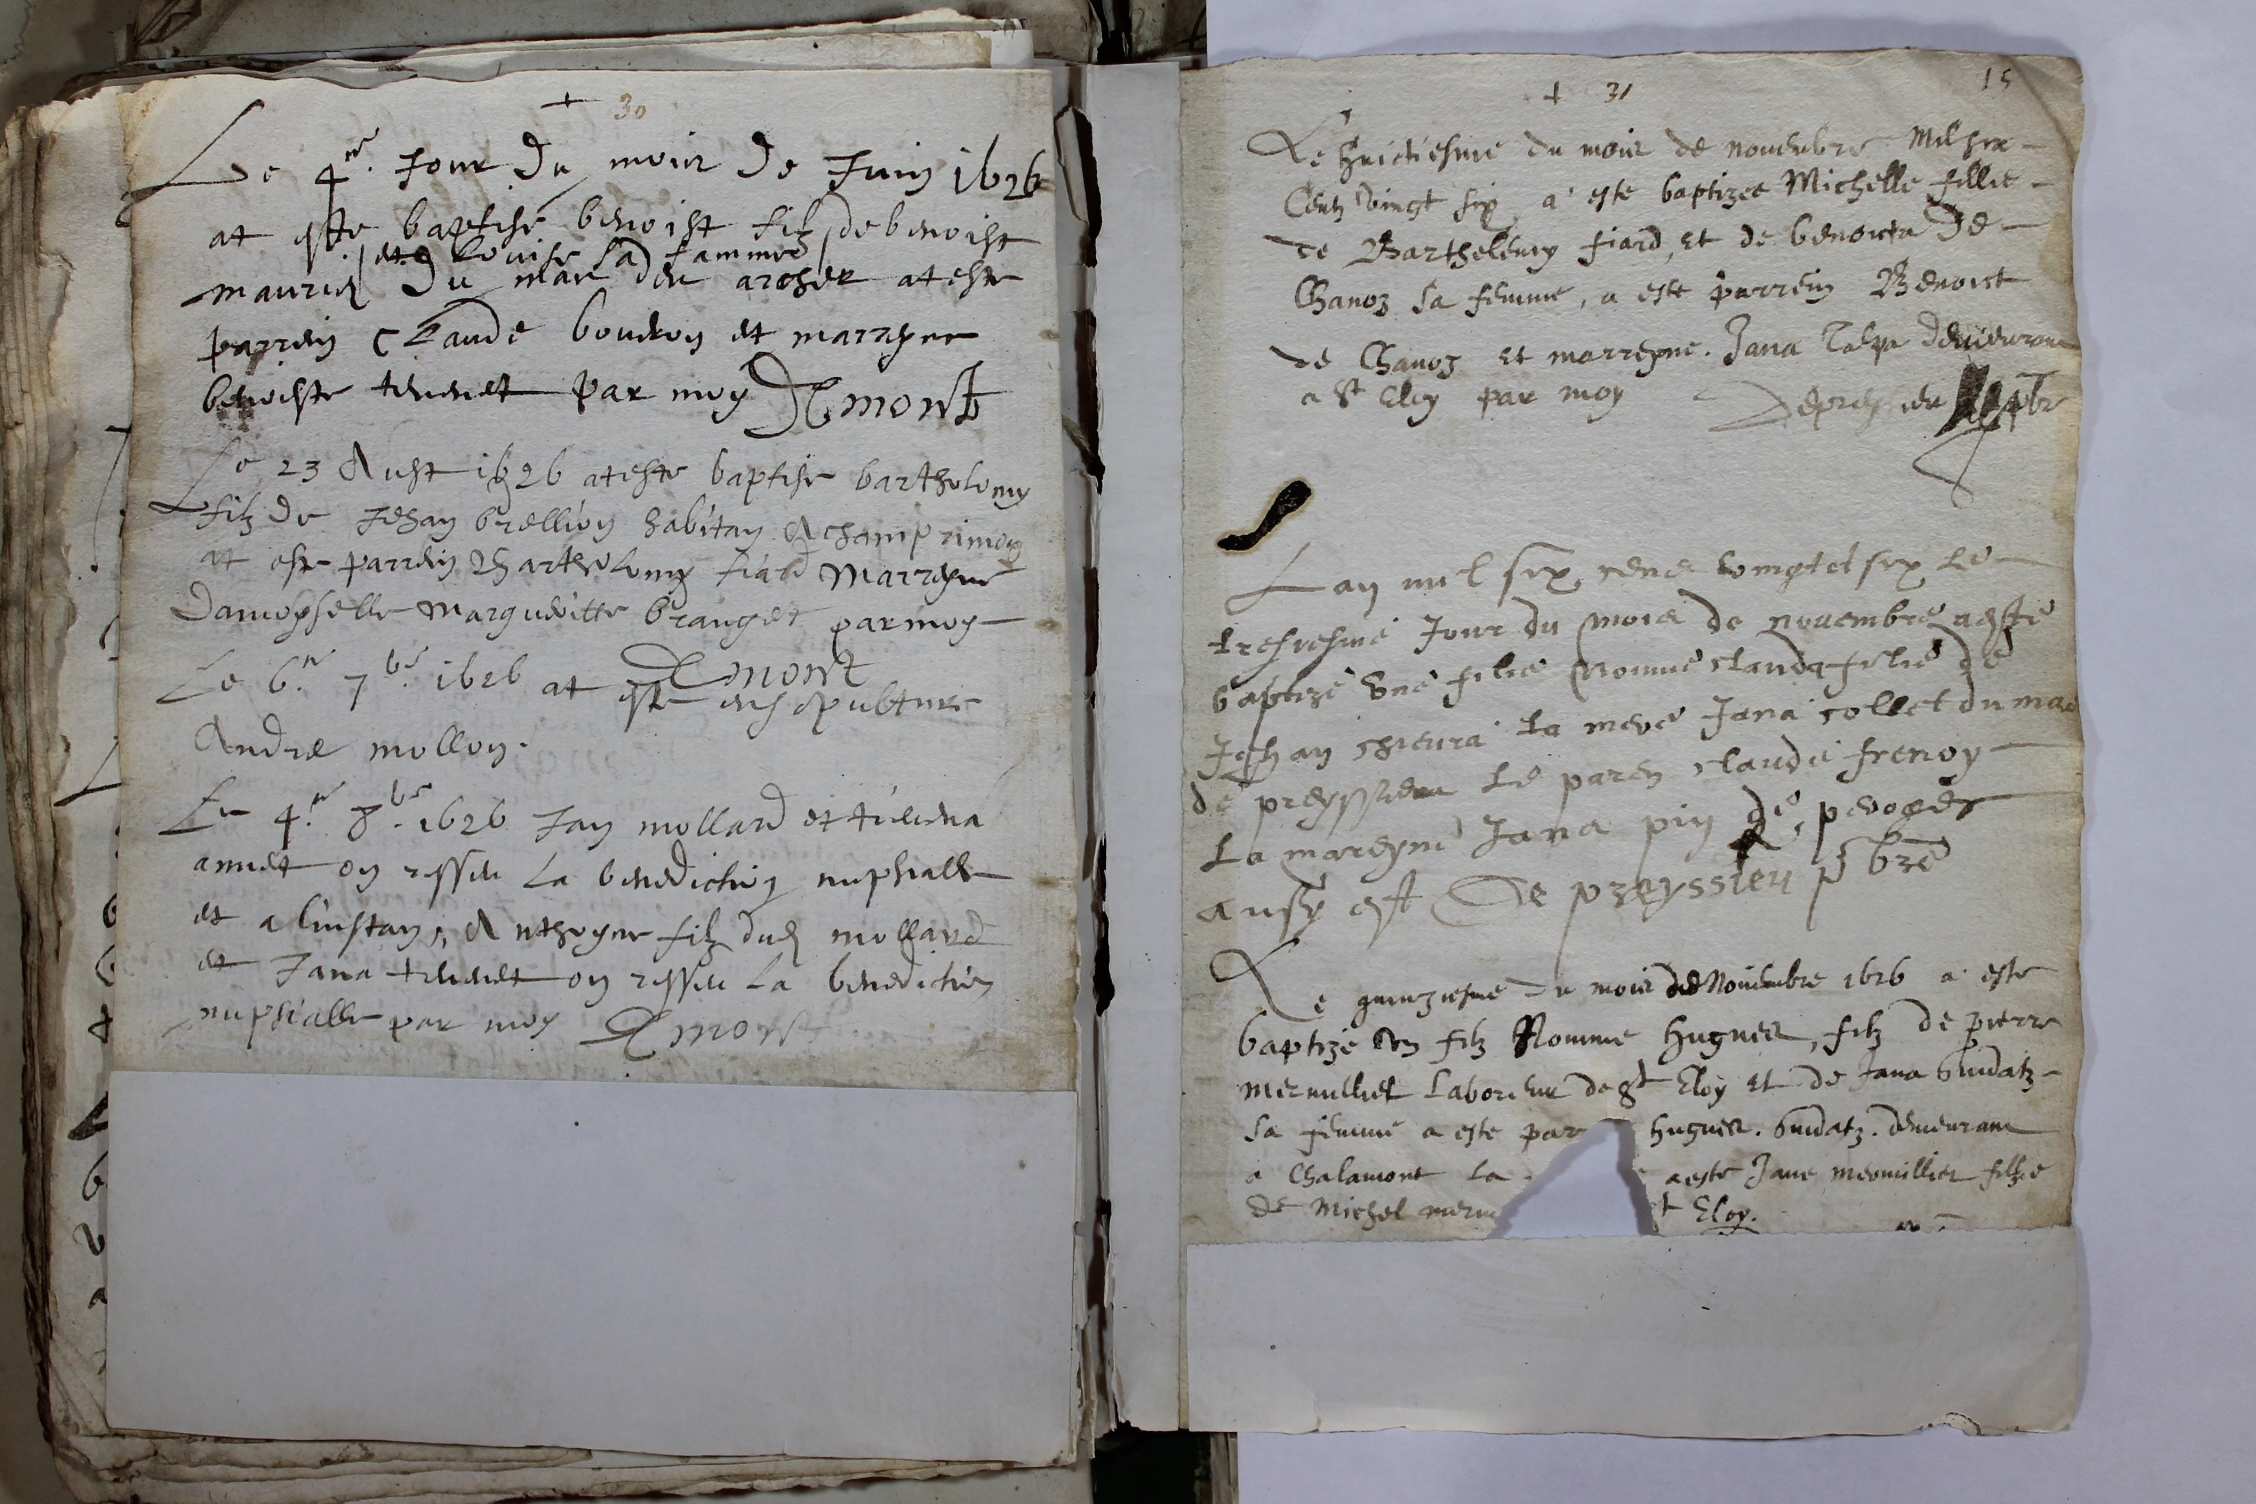 + 30
Le 4me. Jour du mois de Juin 1626
at este baptise benoist filz de benoist
et louise sa famme
mauriz du mas des archer at este
parrein claude boudron et marreyne
benoiste tevenet par moy Emont
Le 23 Aust 1626 at este baptise bartholomy
filz de Jehan brellion habitan A champrimon
at este parrein Bartholomy fiard Marreyne
damoysselle margueritte branget par moy
Emont
Le 6me 7bre 1626 at este ensepulture
Andre mollon.
Le 4me. 8bre. 1626 Jan mollard et tievena
annet on ressu la benediction nuphialle
et a linstan, Anthoyne filz dud mollard
et Jana tevenet on ressu la benediction
nuphialle par moy Emont
+ 31
15
Le huictiesme du mois de novembre Mil six
Centz vingt six a este baptizee Michelle fillie
de Barthelemy fiard, et de benoicta De
Chanoz sa femme, a este parrein Benoist
de Chanoz et marreyne. Jana Talpa demeurant
a St Eloy par moy Depreyssieu pbre
Lan mil six cens vingt et six le
tresiesme Jour du mois de novembre aeste
baptize une filie nomme clauda filie de
Jehan chieura la mere Jana collet du mas
de preyssieu le paren claude frenoy
la mareyne Jana pin de peroges
ausy est De preyssieu pbre
Le quinziesme du mois de Novembre 1626 a este
baptize un filz Nomme hugues, filz de pierre
mermilliet Laboreur de St Eloy et de Jana buidatz
sa femme a este par hugues. buidatz. demeurant
a Chalamont La aeste Jane mermillier fillie
de Michel merm t Eloy.